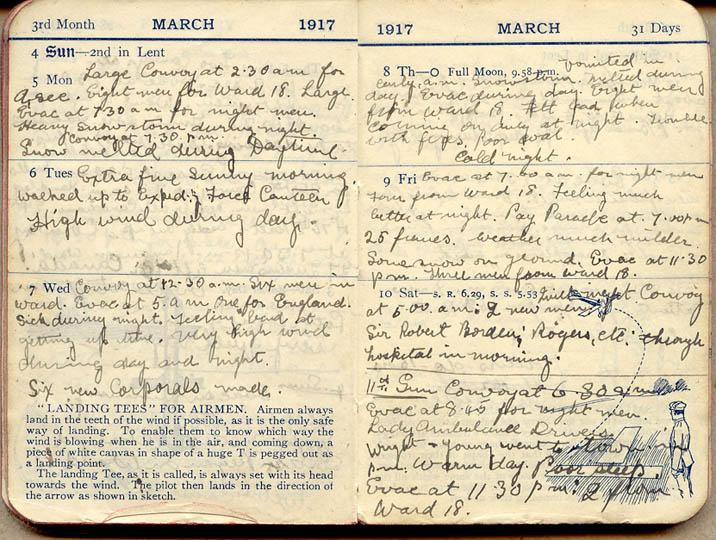 3rd Month MARCH 1917
4 Sun—2nd in Lent
5 Mon Large Convoy at 2.30 am for
Eight men for Ward 18. Large
Evac at 7.30 am for night men.
Heavy snowstorm during night.
Convoy at 7.30 p.m.
Snow melted during Daytime.
6 Tues Extra fine sunny morning
walked up to Exped. Force Canteen
High wind during day.
7 Wed Convoy at 12.30 a.m. Six men in
ward. Evac at 5. a m one for England.
Sick during night. Feeling bad at
getting up time. Very high wind
during day and night.
Six new Corporals made.
"LANDING TEES" FOR AIRMEN. Airmen always
land in the teeth of the wind if possible, as it is the only safe
way of landing. To enable them to know which way the
wind is blowing when he is in the air, and coming down, a
piece of white canvas in shape of a huge T is pegged out as
a landing point.
The landing Tee, as it is called, is always set with its head
towards the wind. The pilot then lands in the direction of
the arrow as shown in sketch.
1917 MARCH 31 Days
8 Th—O Full Moon, 9.58 p.m. vomited in
early a.m. Snowstorm. melted during
day. Evac during day. Eight men
from Ward 18. Felt bad when
coming on duty at night. Trouble
with fires, poor coal.
Cold night.
9 Fri Evac at 7. a.m. for night men
Four from Ward 18. Feeling much
better at night. Pay Parade at 7.
25 francs. Weather much milder.
Some snow on ground. Evac at 11.30
p.m. Three men from Ward 18.
10 Sat—S. R. 6.29, S. S. 5.53 Convoy
at 5.00 a.m. 2 new men
Sir Robert Borden, Rogers, etc. through
hospital in morning.
11th Sun Convoy at 6.30 a m
Evac at 8.45 for night men.
Lady Ambulance Drivers
Wright - Young went to town in
p.m. Warm day. Poor sleep.
Evac at 11 30 p m. 2 from
Ward 18.